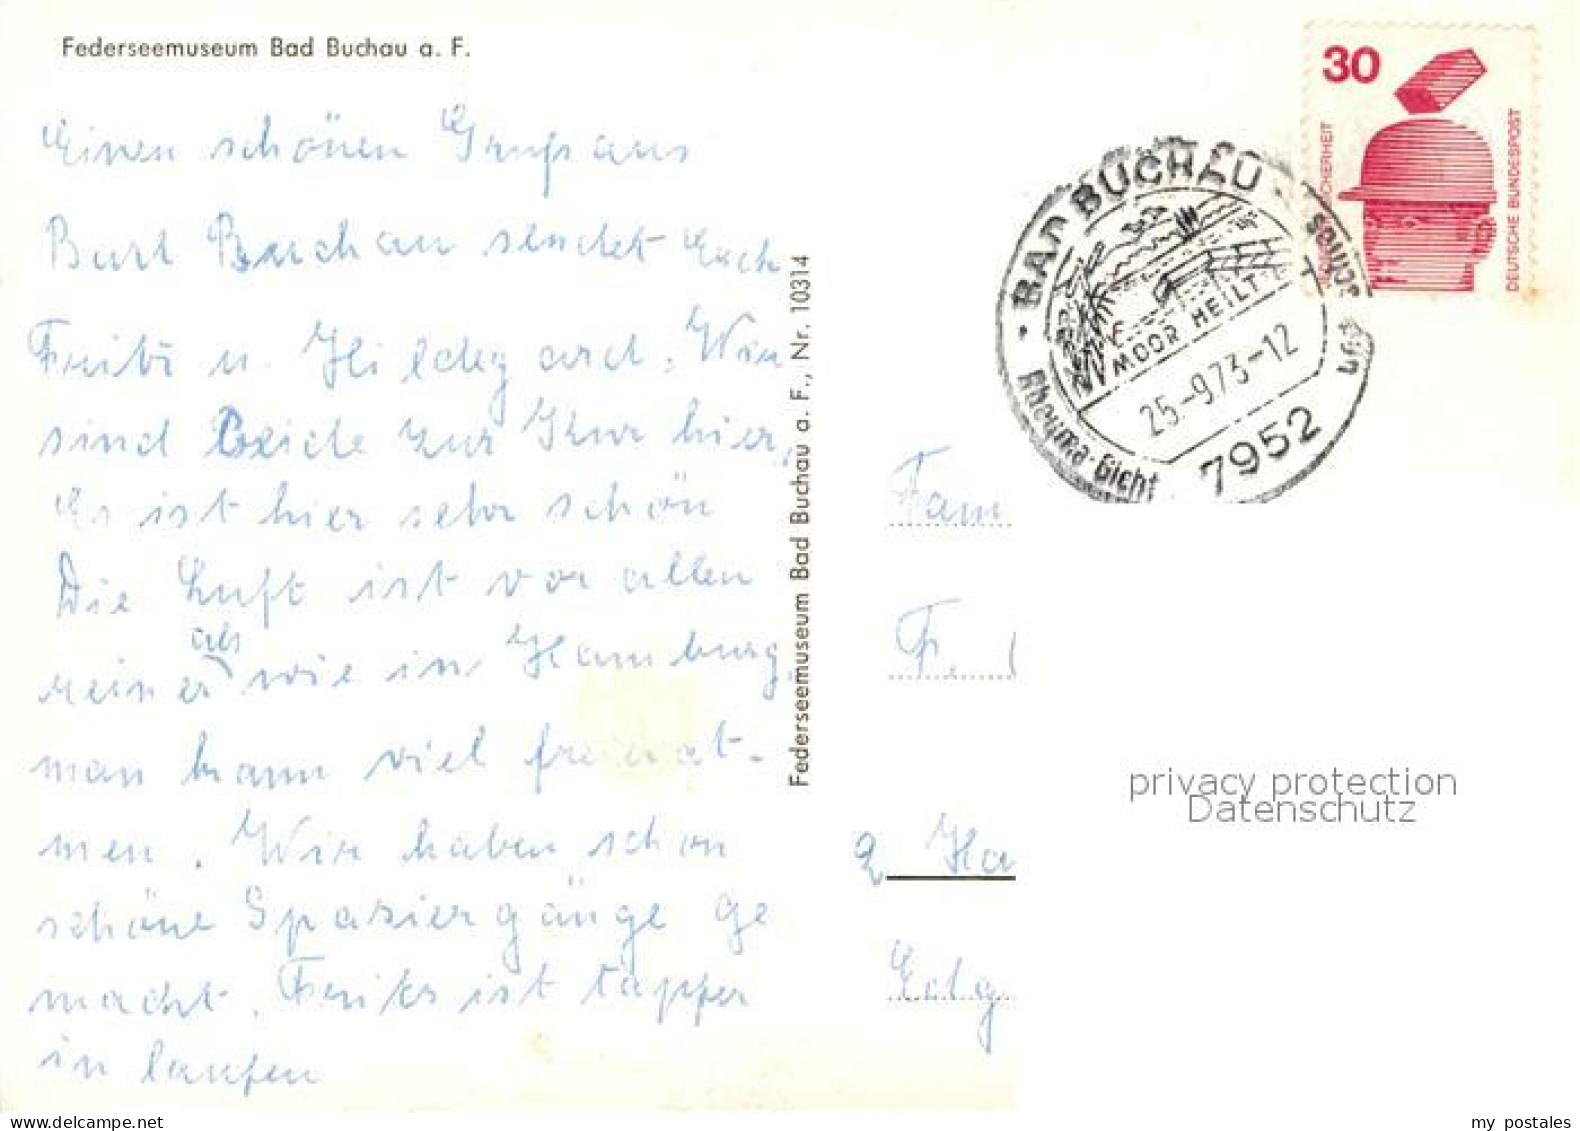 Federseemuseum Bad Buchau a. F.
Einen schönen Gruß aus
Burt Buchau sendet Euch
Fritz u. Hildegard. Wir
sind Beide zur Kur hier,
Es ist hier sehr schön
Die Luft ist vor allen
als
reiner wie in Hamburg,
man kann viel freier at-
men. Wir haben schon
schöne Spaziergänge ge
macht. Fritz ist tapper
in laufen
Federseemuseum Bad Buchau a. F., Nr. 10314
30
DEUTSCHE BUNDESPOST
BAD BUCHAU
MOOR HEILT
25.-9.73-12
7952
Rheuma-Gicht
Ischias
Fam
F.
2 Ha
Edg
privacy protection
Datenschutz
www.delcampe.net
my postales